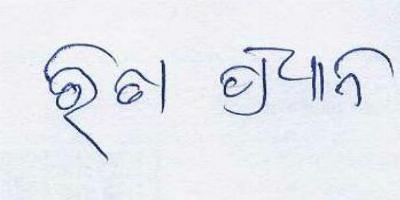 ରିତା ପ୍ରଧାନ